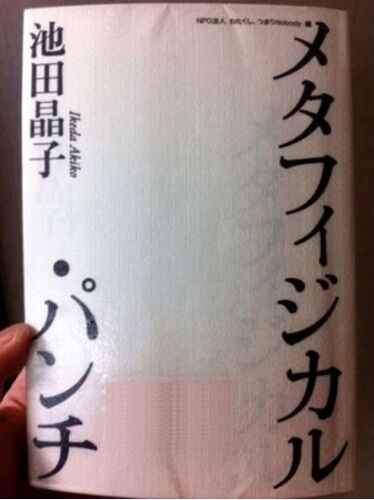 NPO法人 わたくし、つまりNobody 編
メタフィジカル
・パンチ
池田晶子
Ikeda Akiko